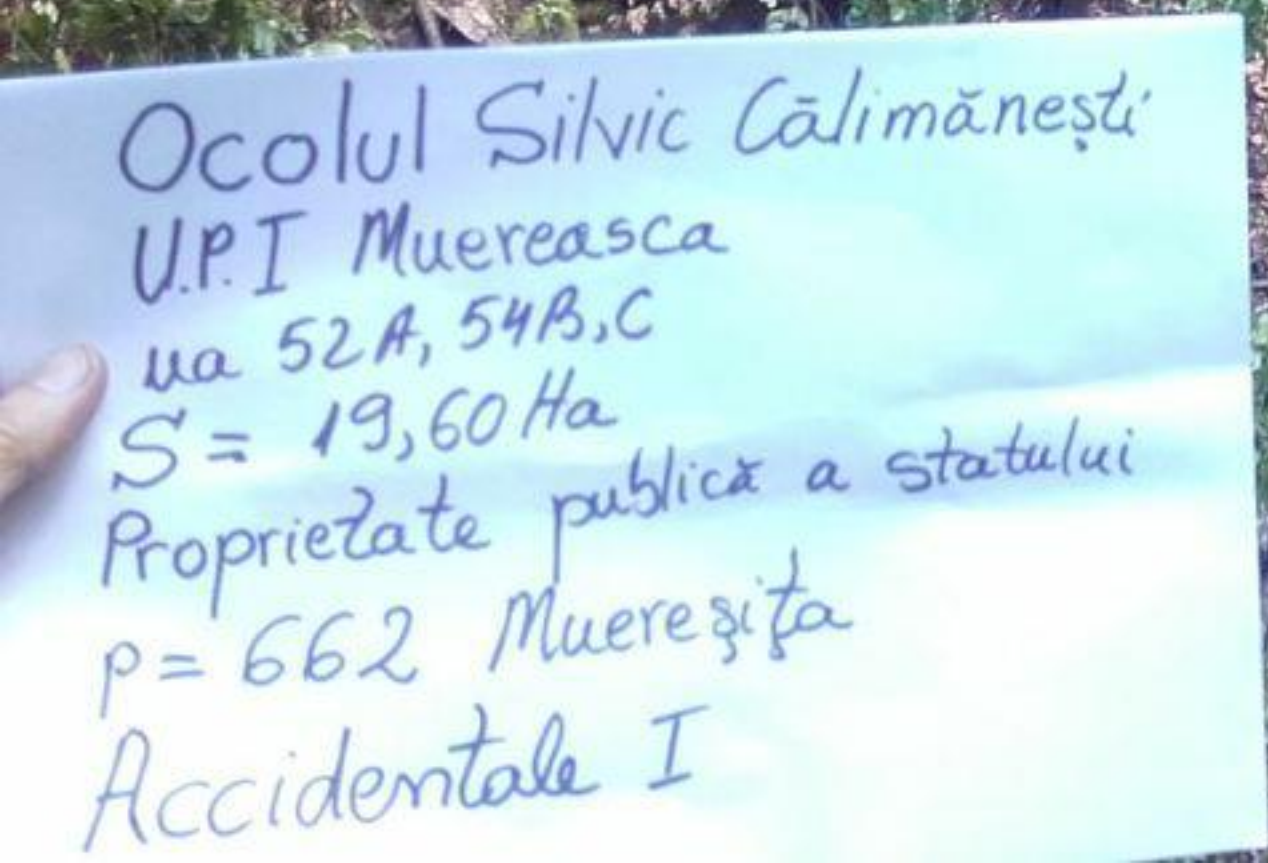 Ocolul Silvic Călimănești
U.P.I Muereasca
ua 52A, 54B,C
S = 19,60 Ha
Proprietate publică a statului
p = 662 Muereșița
Accidentale I